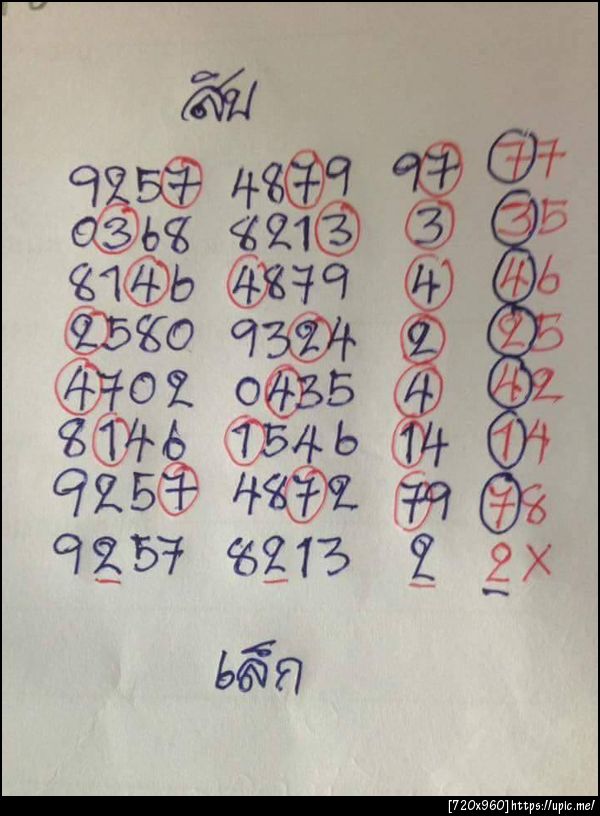 สิบ
9257 4879 97 77
0368 8213 3 35
8146 4879 4 46
2580 9324 2 25
4702 0435 4 42
8146 1546 14 14
9257 4872 79 78
9257 8213 2 2X
[720x960]https://upic.me/